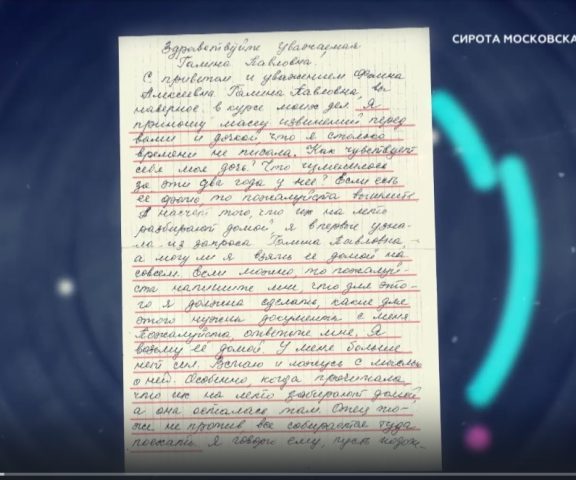 СИРОТА МОСКОВСКА
Здравствуйте уважаемая
Галина Павловна.
С приветом и уважением Фаина
Алексеевна. Галина Павловна, вы
наверное в курсе моих дел. Я
приношу массу извинений перед
вами и дочкой что я столько
времени не писала. Как чувствует
себя моя дочь? Что
за эти два года у нее? Если есть
ее фото, то пожалуйста вышлите
А насчет того, что их на лето
разбирают домой, я впервые узна-
ла из запроса Галина Павловна
а могу ли я взять ее домой на
совсем. Если можно, то пожалуй-
ста напишите мне, что для это-
го я должна сделать, какие для
этого нужны документы с меня
Пожалуйста, ответьте мне. Я
возьму её домой У меня больше
нет сил. Встаю и ложусь с мыслью
о ней. Особенно, когда прочитала
что их на лето забирают домой,
а она осталась там. Отец то-
же не против, все собирается туда
поехать Я говорю ему, пусть